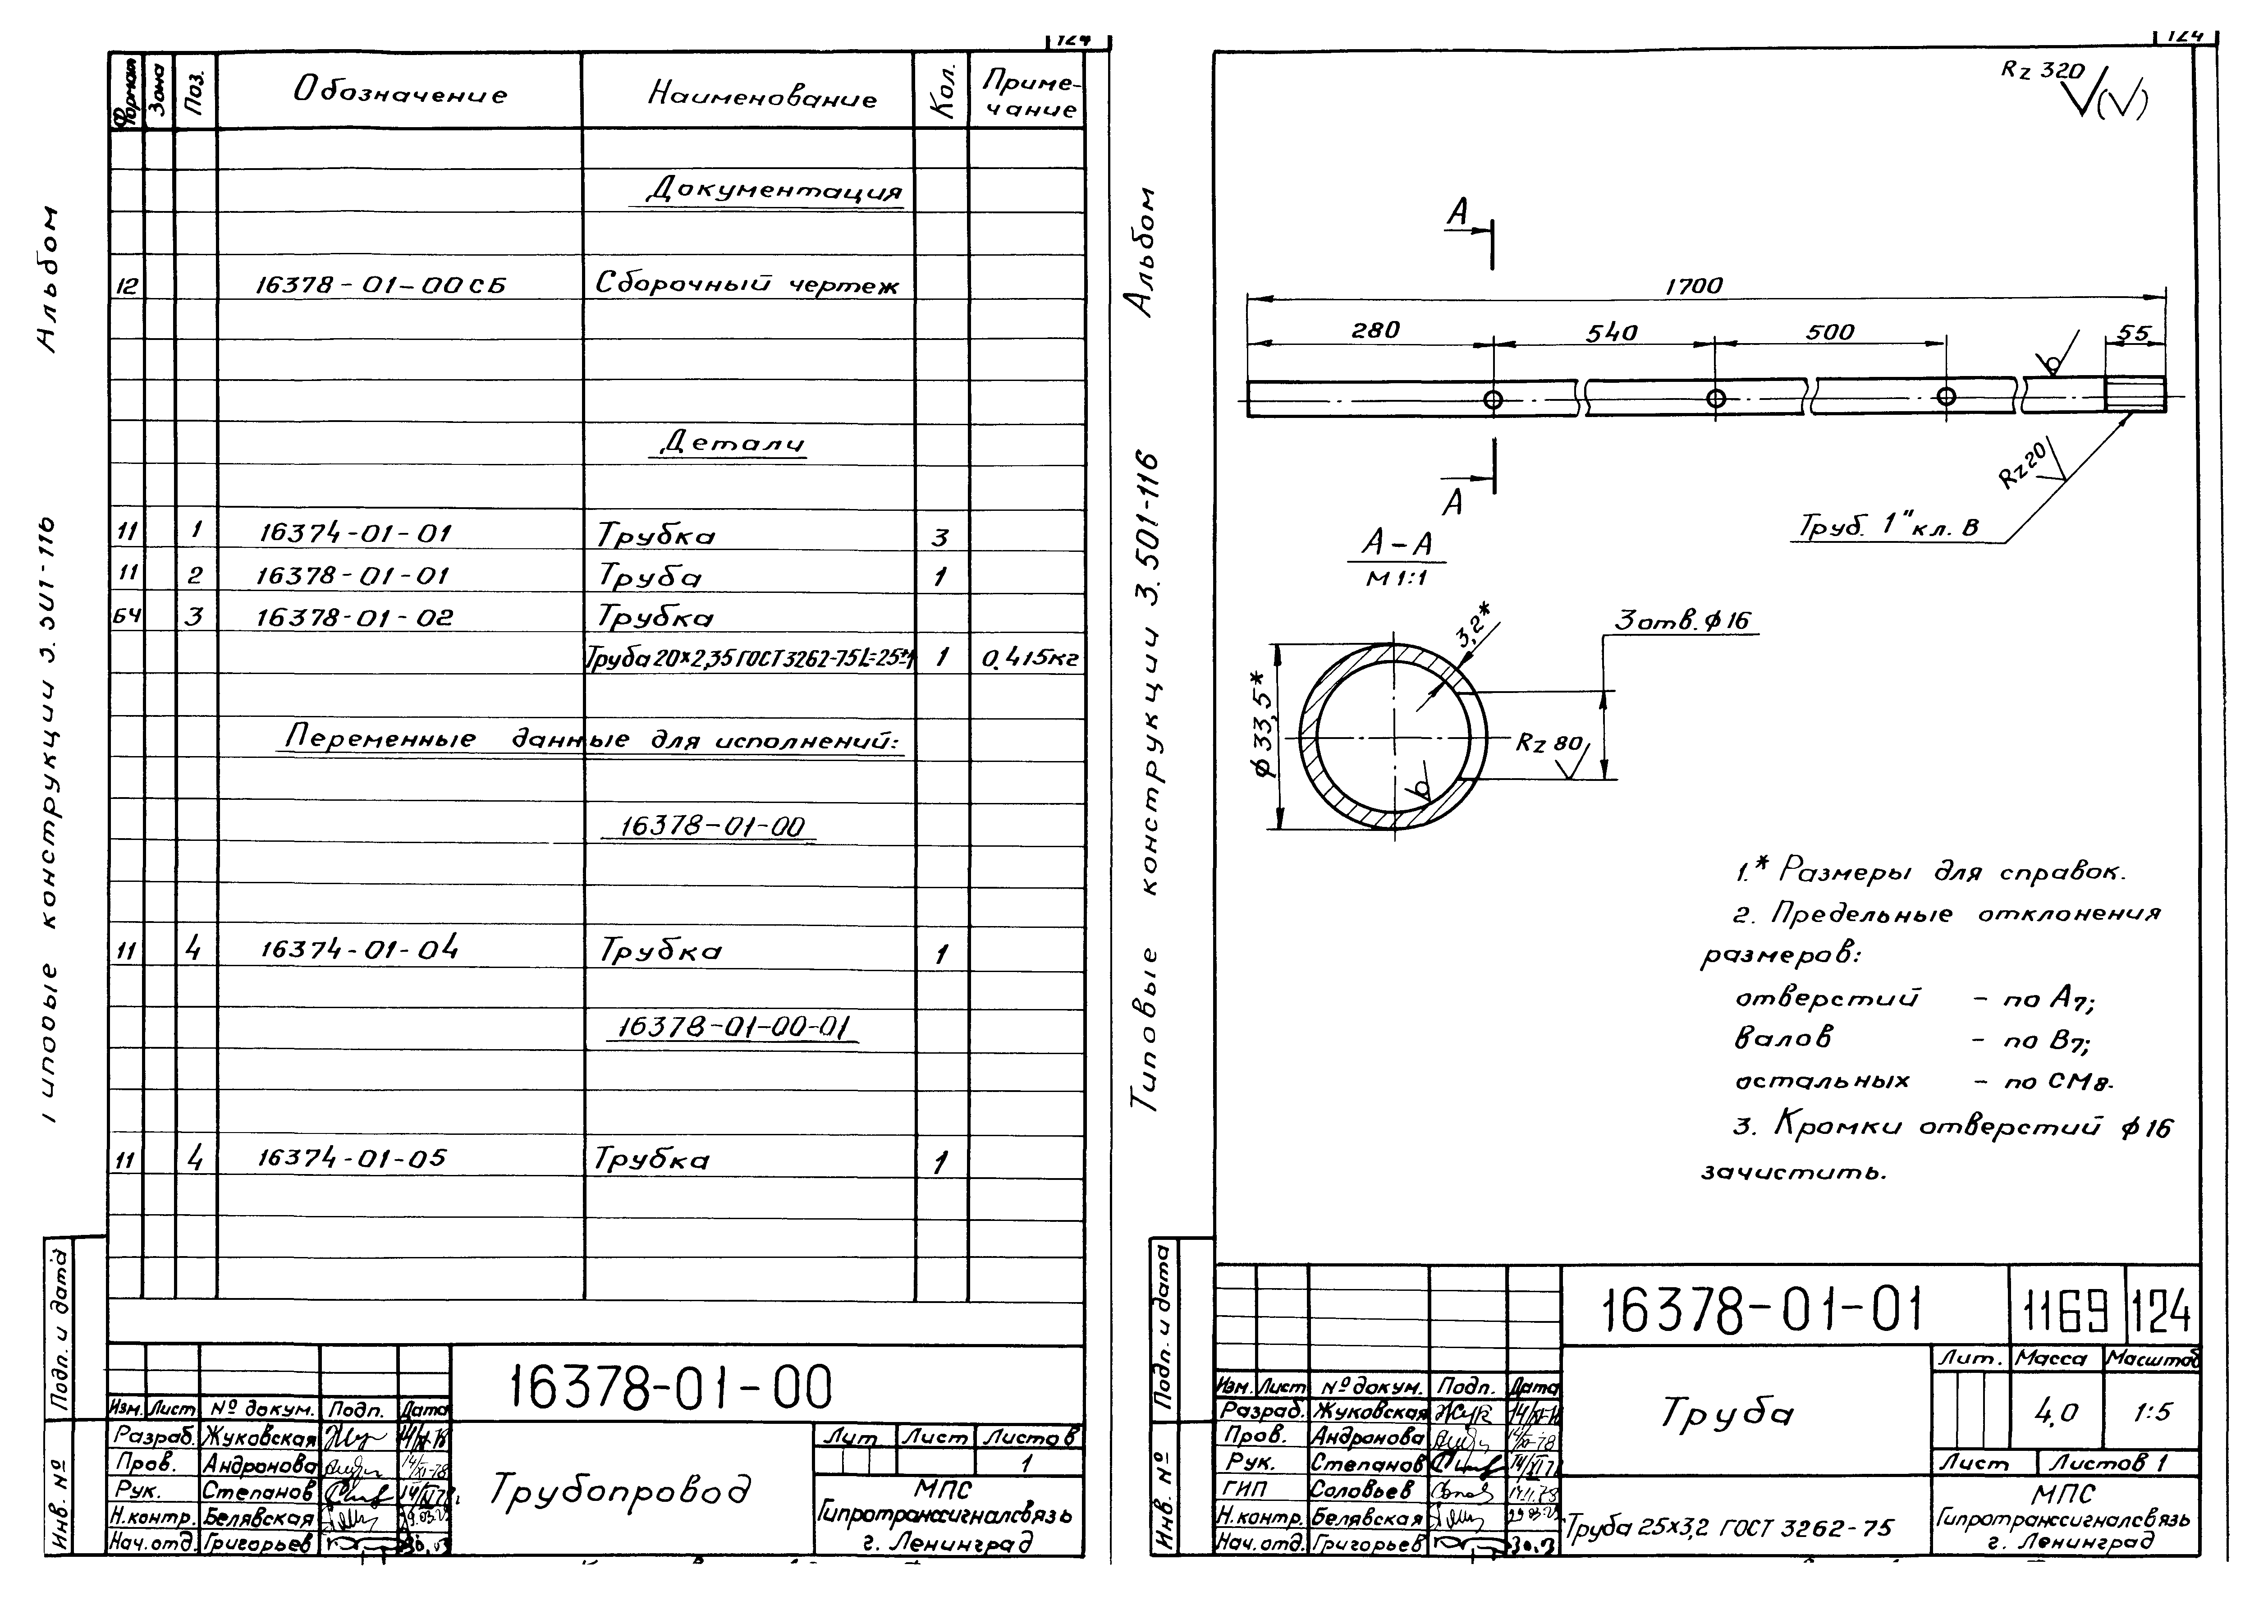 124
Формат Зона Поз. Обозначение Наименование Кол. Приме-
чание
Документация
12 16378-01-00СБ Сборочный чертеж
Детали
11 1 16374-01-01 Трубка 3
11 2 16378-01-01 Труба 1
БЧ 3 16378-01-02 Трубка
Труба 20×2,35 ГОСТ 3262-75 1 0,415кг
Переменные данные для исполнений:
16378-01-00
11 4 16374-01-04 Трубка 1
16378-01-00-01
11 4 16374-01-05 Трубка 1
Альбом
Типовые конструкции 3.501-116
Подп. и дата
Инв. №
16378-01-00
Изм. Лист № докум. Подп. Дата
Разраб. Жуковская
Пров. Андронова
Рук. Степанов
Н.контр. Белявская
Нач.отд. Григорьев
Трубопровод
Лит Лист Листов
1
МПС
Гипротранссигналсвязь
г. Ленинград
124
Rz 320
(√)
Альбом
Типовые конструкции 3.501-116
А
1700
280 540 500 55
А
Rz20
Труб. 1" кл. В
А-А
М 1:1
3,2*
3 отв. ф16
ф33,5*
Rz 80
1.* Размеры для справок.
2. Предельные отклонения
размеров:
отверстий - по А7;
валов - по В7;
остальных - по СМ8.
3. Кромки отверстий ф16
зачистить.
Подп. и дата
Инв. №
16378-01-01 1169 124
Изм. Лист № докум. Подп. Дата
Разраб. Жуковская
Пров. Андронова
Рук. Степанов
ГИП Соловьев
Н.контр. Белявская
Нач.отд. Григорьев
Труба
Лит. Масса Масштаб
4,0 1:5
Лист Листов 1
Труба 25×3,2 ГОСТ 3262-75
МПС
Гипротранссигналсвязь
г. Ленинград